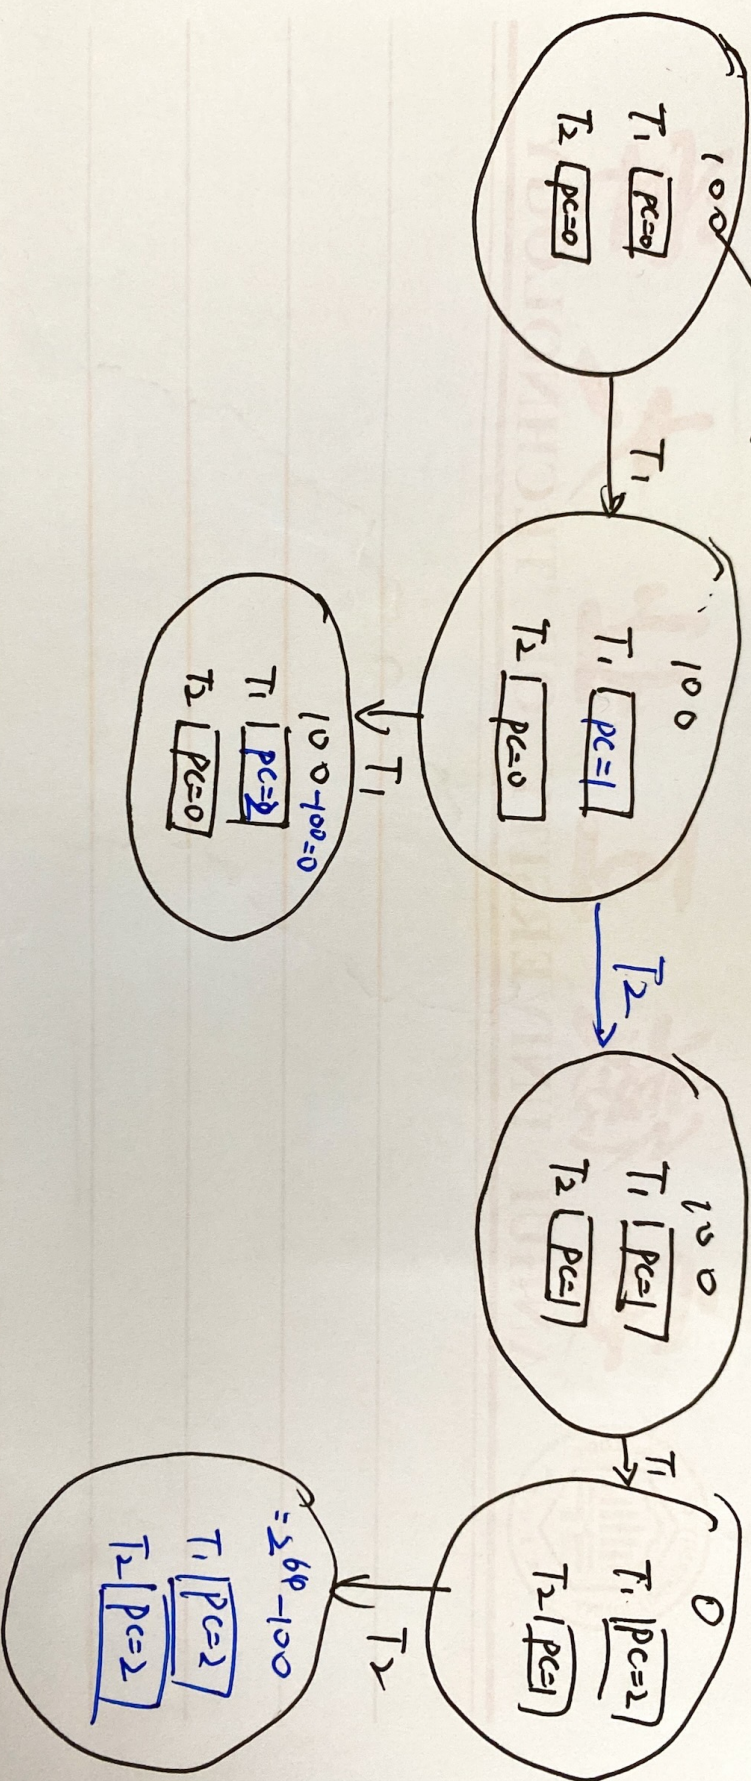 100
T1 pc=0
T2 pc=0
T1
100
T1 pc=1
T2 pc=0
T1
100-100=0
T1 pc=2
T2 pc=0
T2
100
T1 pc=1
T2 pc=1
T1
0
T1 pc=2
T2 pc=1
T2
=2^64-100
T1 pc=2
T2 pc=2